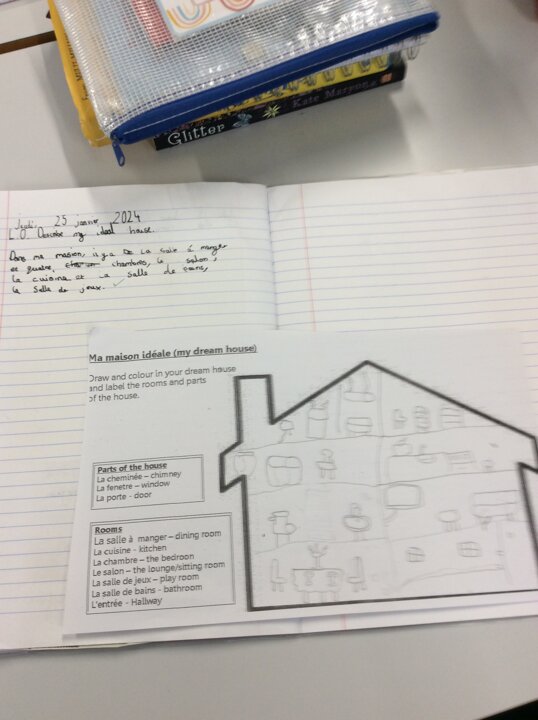 Glitter
Kate Maryon
Jeudi 25 janvier 2024
L.O Describe my ideal house.
Dans ma maison, il y a De La Salle à manger
et quatre, chambres, le salon,
la cuisine et La salle de
la Salle de jeux.
Ma maison idéale (my dream house)
Draw and colour in your dream house
and label the rooms and parts
of the house.
Parts of the house
La cheminée – chimney
La fenetre – window
La porte - door
Rooms
La salle à manger – dining room
La cuisine - kitchen
La chambre – the bedroon
Le salon – the lounge/sitting room
La salle de jeux – play room
La salle de bains - bathroom
L'entrée - Hallway